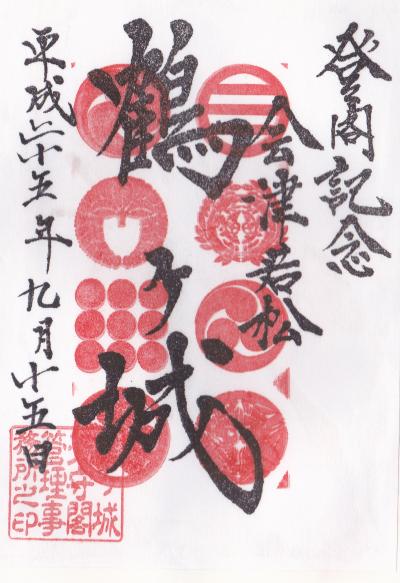 登閣記念
会津若松
鶴ヶ城
平成二十五年九月十五日
守閣
管理事
務所之印